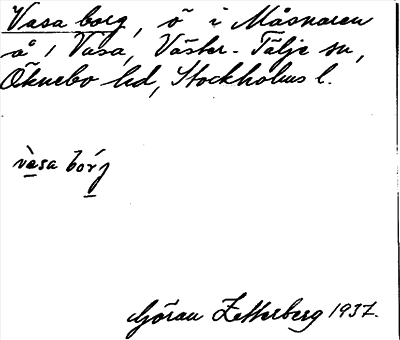 Vasa borg, ö i Måsnaren
å / Vasa, Väster-Tälje sn,
Öknebo hd, Stockholms l.
vèsa bórj
Göran Zetterberg 1937.